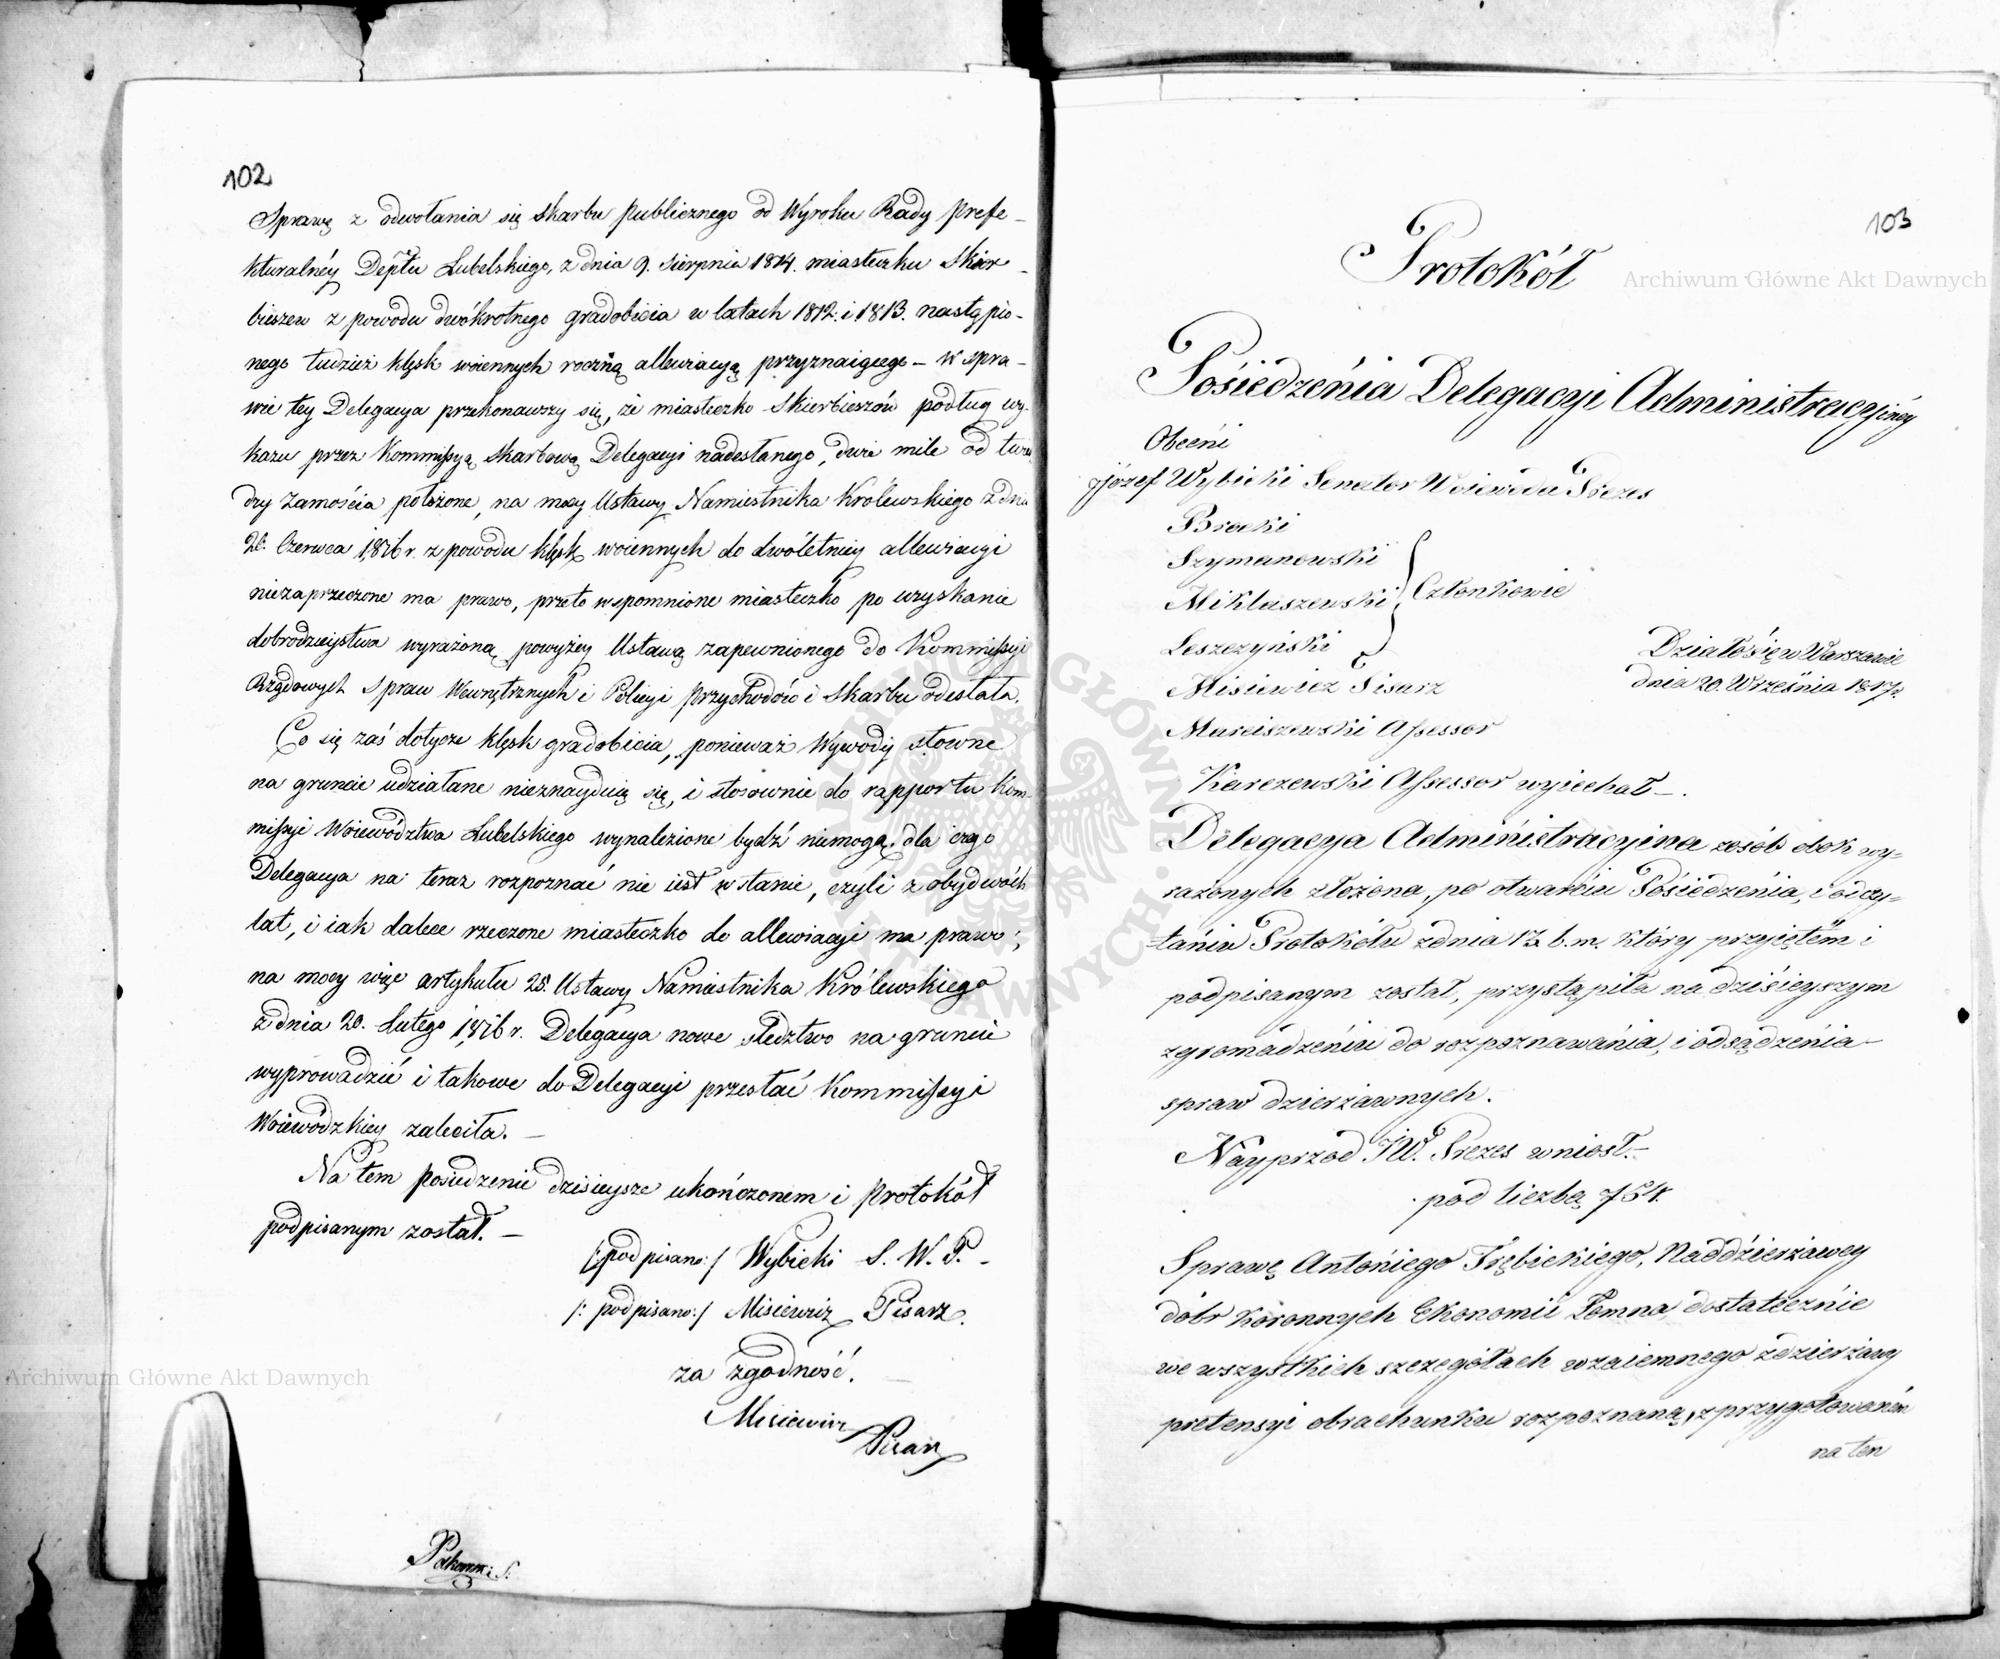 102
Sprawę z odwołania się skarbu publicznego od Wyroku Rady Prefe-
kturalnéy Deptu Lubelskiego, z dnia 9. Sierpnia 1814. miasteczku Skier-
bieszew z powodu dwókrotnego gradobicia w latach 1812. i 1813. nastąpio-
nego tudzież klęsk woiennych roczną allewiacyą przyznaiącego - w spra-
wie tey Delegacya przekonawszy się, że miasteczko Skierbieszów podług wy-
kazu przez Kommissyą Skarbową Delegacyi nadesłanego, dwie mile od twier-
dzy Zamościa położone, na mocy Ustawy Namiestnika Królewskiego z dnia
20. Czerwca 1816 r. z powodu klęsk woiennych do dwóletniey allewiacyi
niezaprzeczone ma prawo, przeto wspomnione miasteczko po uzyskanie
dobrodzieystwa wyrażoną powyżey Ustawą zapewnionego do Kommissyi
Rządowych Spraw Wewnętrznych i Policyi Przychodów i Skarbu odesłała.
Co się zaś dotycze klęsk gradobicia, ponieważ Wywody słowne
na gruncie udziałane nieznayduią się, i stosownie do rapportu Kom-
missyi Woiewództwa Lubelskiego wynalezione bydź niemogą, dla czego
Delegacya na teraz rozpoznać nie iest w stanie, czyli z obydwóch
lat, i iak dalece rzeczone miasteczko do allewiacyi ma prawo;
na mocy więc artykułu 28. Ustawy Namiestnika Królewskiego
z dnia 20. Lutego 1816 r. Delegacya nowe śledztwo na gruncie
wyprowadzić i takowe do Delegacyi przesłać Kommissyi
Woiewódzkiey zaleciła. -
Na tem posiedzenie dzisieysze ukończonem i Protokół
podpisanym został. -
/: podpisano :/ Wybicki S. W. P. -
/: podpisano :/ Misiewicz Pisarz.
za zgodność.
Misiewicz
Pisarz
103
Protokół
Posiedzenia Delegacyi Administracyinéy
Obecni
Józef Wybicki Senator Woiewoda Prezes
Brocki
Szymanowski
Miklaszewski
Członkowie
Leszczyński
Misiewicz Pisarz
Działo się w Warszawie
dnia 20. Września 1817 r.
Marciszewski Assessor
Karczewski Assessor wyiechał -.
Delegacya Administracyina zosób obok wy-
rażonych złożona, po otwarciu Posiedzenia, i odczy-
taniu Protokółu z dnia 13 b.m. który przyiętem i
podpisanym został, przystąpiła na dzisieyszym
zgromadzeniu do rozpoznawania, i odsądzenia -
spraw dzierżawnych.
Nayprzod JW. Prezes wniosł. -
pod liczbą 754.
Sprawę Antoniego Trębickiego, Naddzierżawcy
dóbr koronnych Ekonomii Łomna, dostatecznie
we wszystkich szczegółach wzaiemnego z dzierżawy
pretensyi obrachunku rozpoznaną, z przygotowaném
na ten
Archiwum Główne Akt Dawnych
Archiwum Główne Akt Dawnych